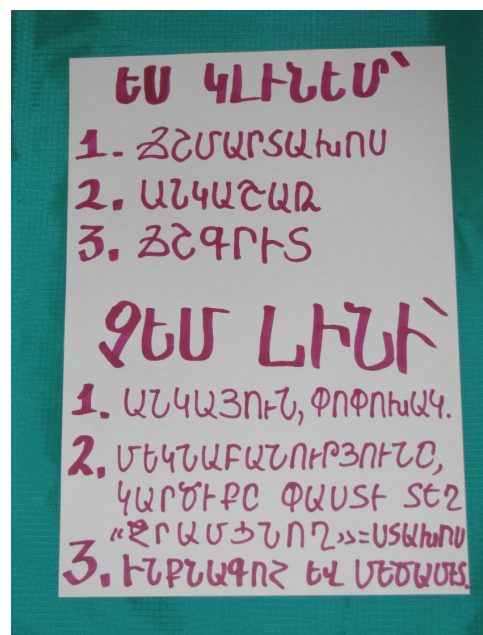 ԵՍ ԿԼԻՆԵՄ՝
1. ՃՇՄԱՐՏԱԽՈՍ
2. ԱՆԿԱՇԱՌ
3. ՃՇԳՐԻՏ
ՉԵՄ ԼԻՆԻ՝
1. ԱՆԿԱՅՈՒՆ, ՓՈՓՈԽԱԿ.
2. ՄԵԿՆԱԲԱՆՈՒԹՅՈՒՆԸ,
ԿԱՐԾԻՔԸ ՓԱՍՏԻ ՏԵՂ
«ՋՐԱՄՑՆՈՂ»=ՍՏԱԽՈՍ
3. ԻՆՔՆԱԳՈՀ ԵՎ ՄԵԾԱՄԻՏ.